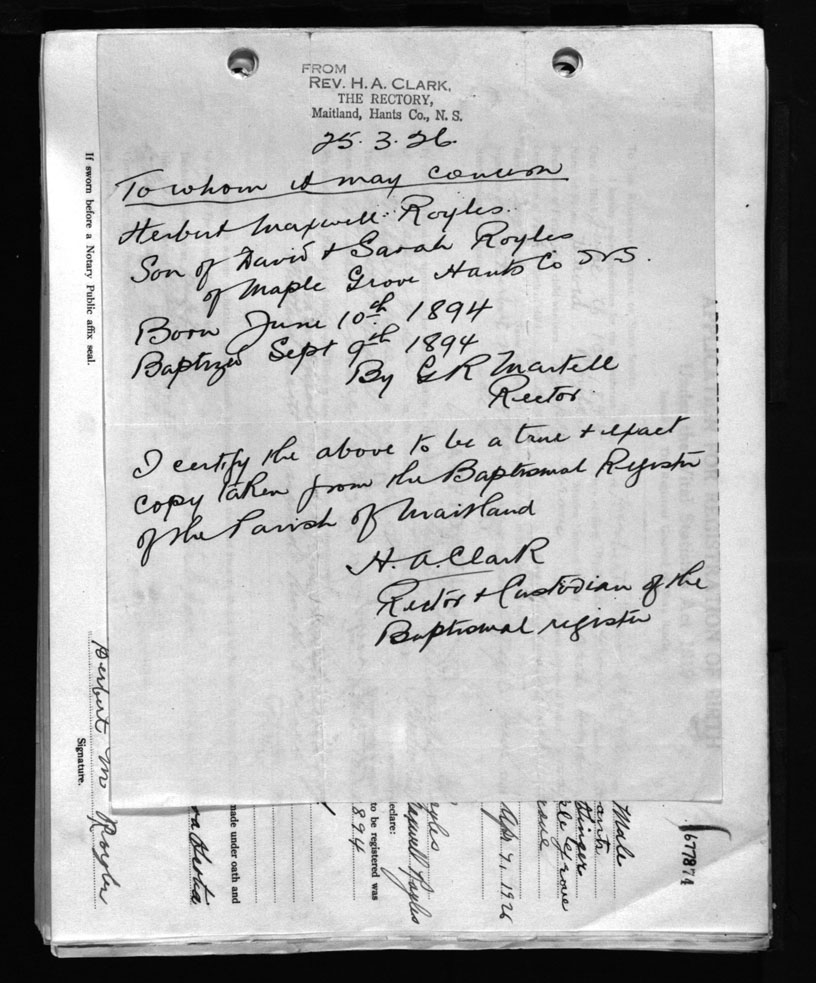 FROM
REV. H. A. CLARK,
THE RECTORY,
Maitland, Hants Co., N. S.
25.3.26.
To whom it may concern
Herbert Maxwell Royles.
Son of David + Sarah Royles
of Maple Grove Hants Co N.S.
Born June 10th 1894
Baptized Sept 9th 1894
By G R Martell
Rector
I certify the above to be a true + exact
copy taken from the Baptismal Register
of the Parish of Maitland
H. A. Clark
Rector + Custodian of the
Baptismal register
If sworn before a Notary Public affix seal.
Herbert M Royles
Signature.
made under oath and
to be registered was
894
eclare:
axwell Royles
Apr 7, 1926
Male
677874